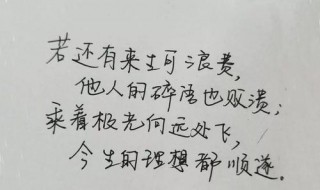 若还有来生可浪费,
他人的碎语也败溃;
乘着极光向远处飞,
今生的理想都顺遂。